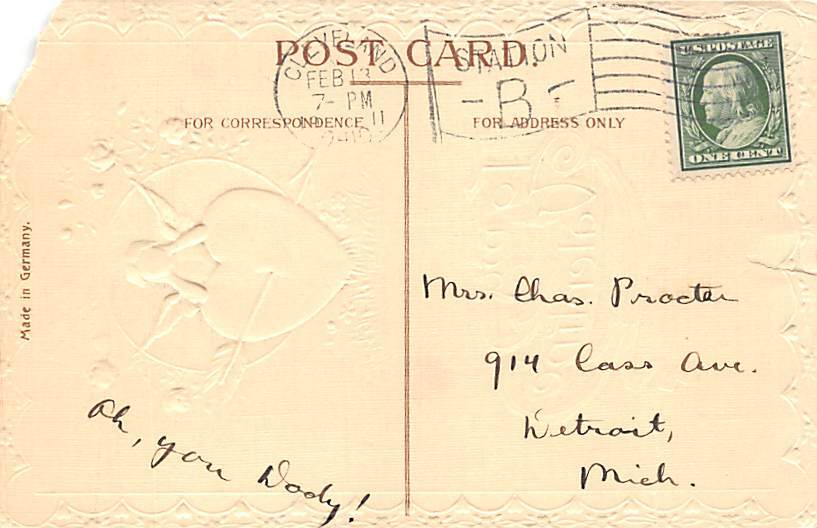 POST CARD.
CLEVELAND
FEB 13
7- PM
STATION
- B -
U.S. POSTAGE
ONE CENT
FOR CORRESPONDENCE
FOR ADDRESS ONLY
Made in Germany.
Mrs. Chas. Procter
914 Cass Ave.
Detroit,
Mich.
Oh, you Dody!